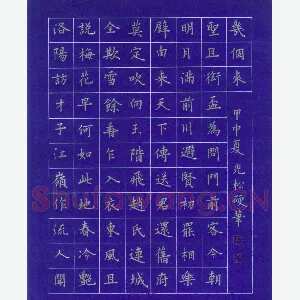 幾個來
甲申夏 光松硬筆
聖且銜盃為問門前客今朝
明月滿前川避賢初罷相樂
璧由來天下傳送君還舊府
莫定吹向玉階飛趙氏連城
全欺雪餘香乍入衣東風且
說梅花早何如此地春冷艷
洛陽訪才子江嶺作流人聞